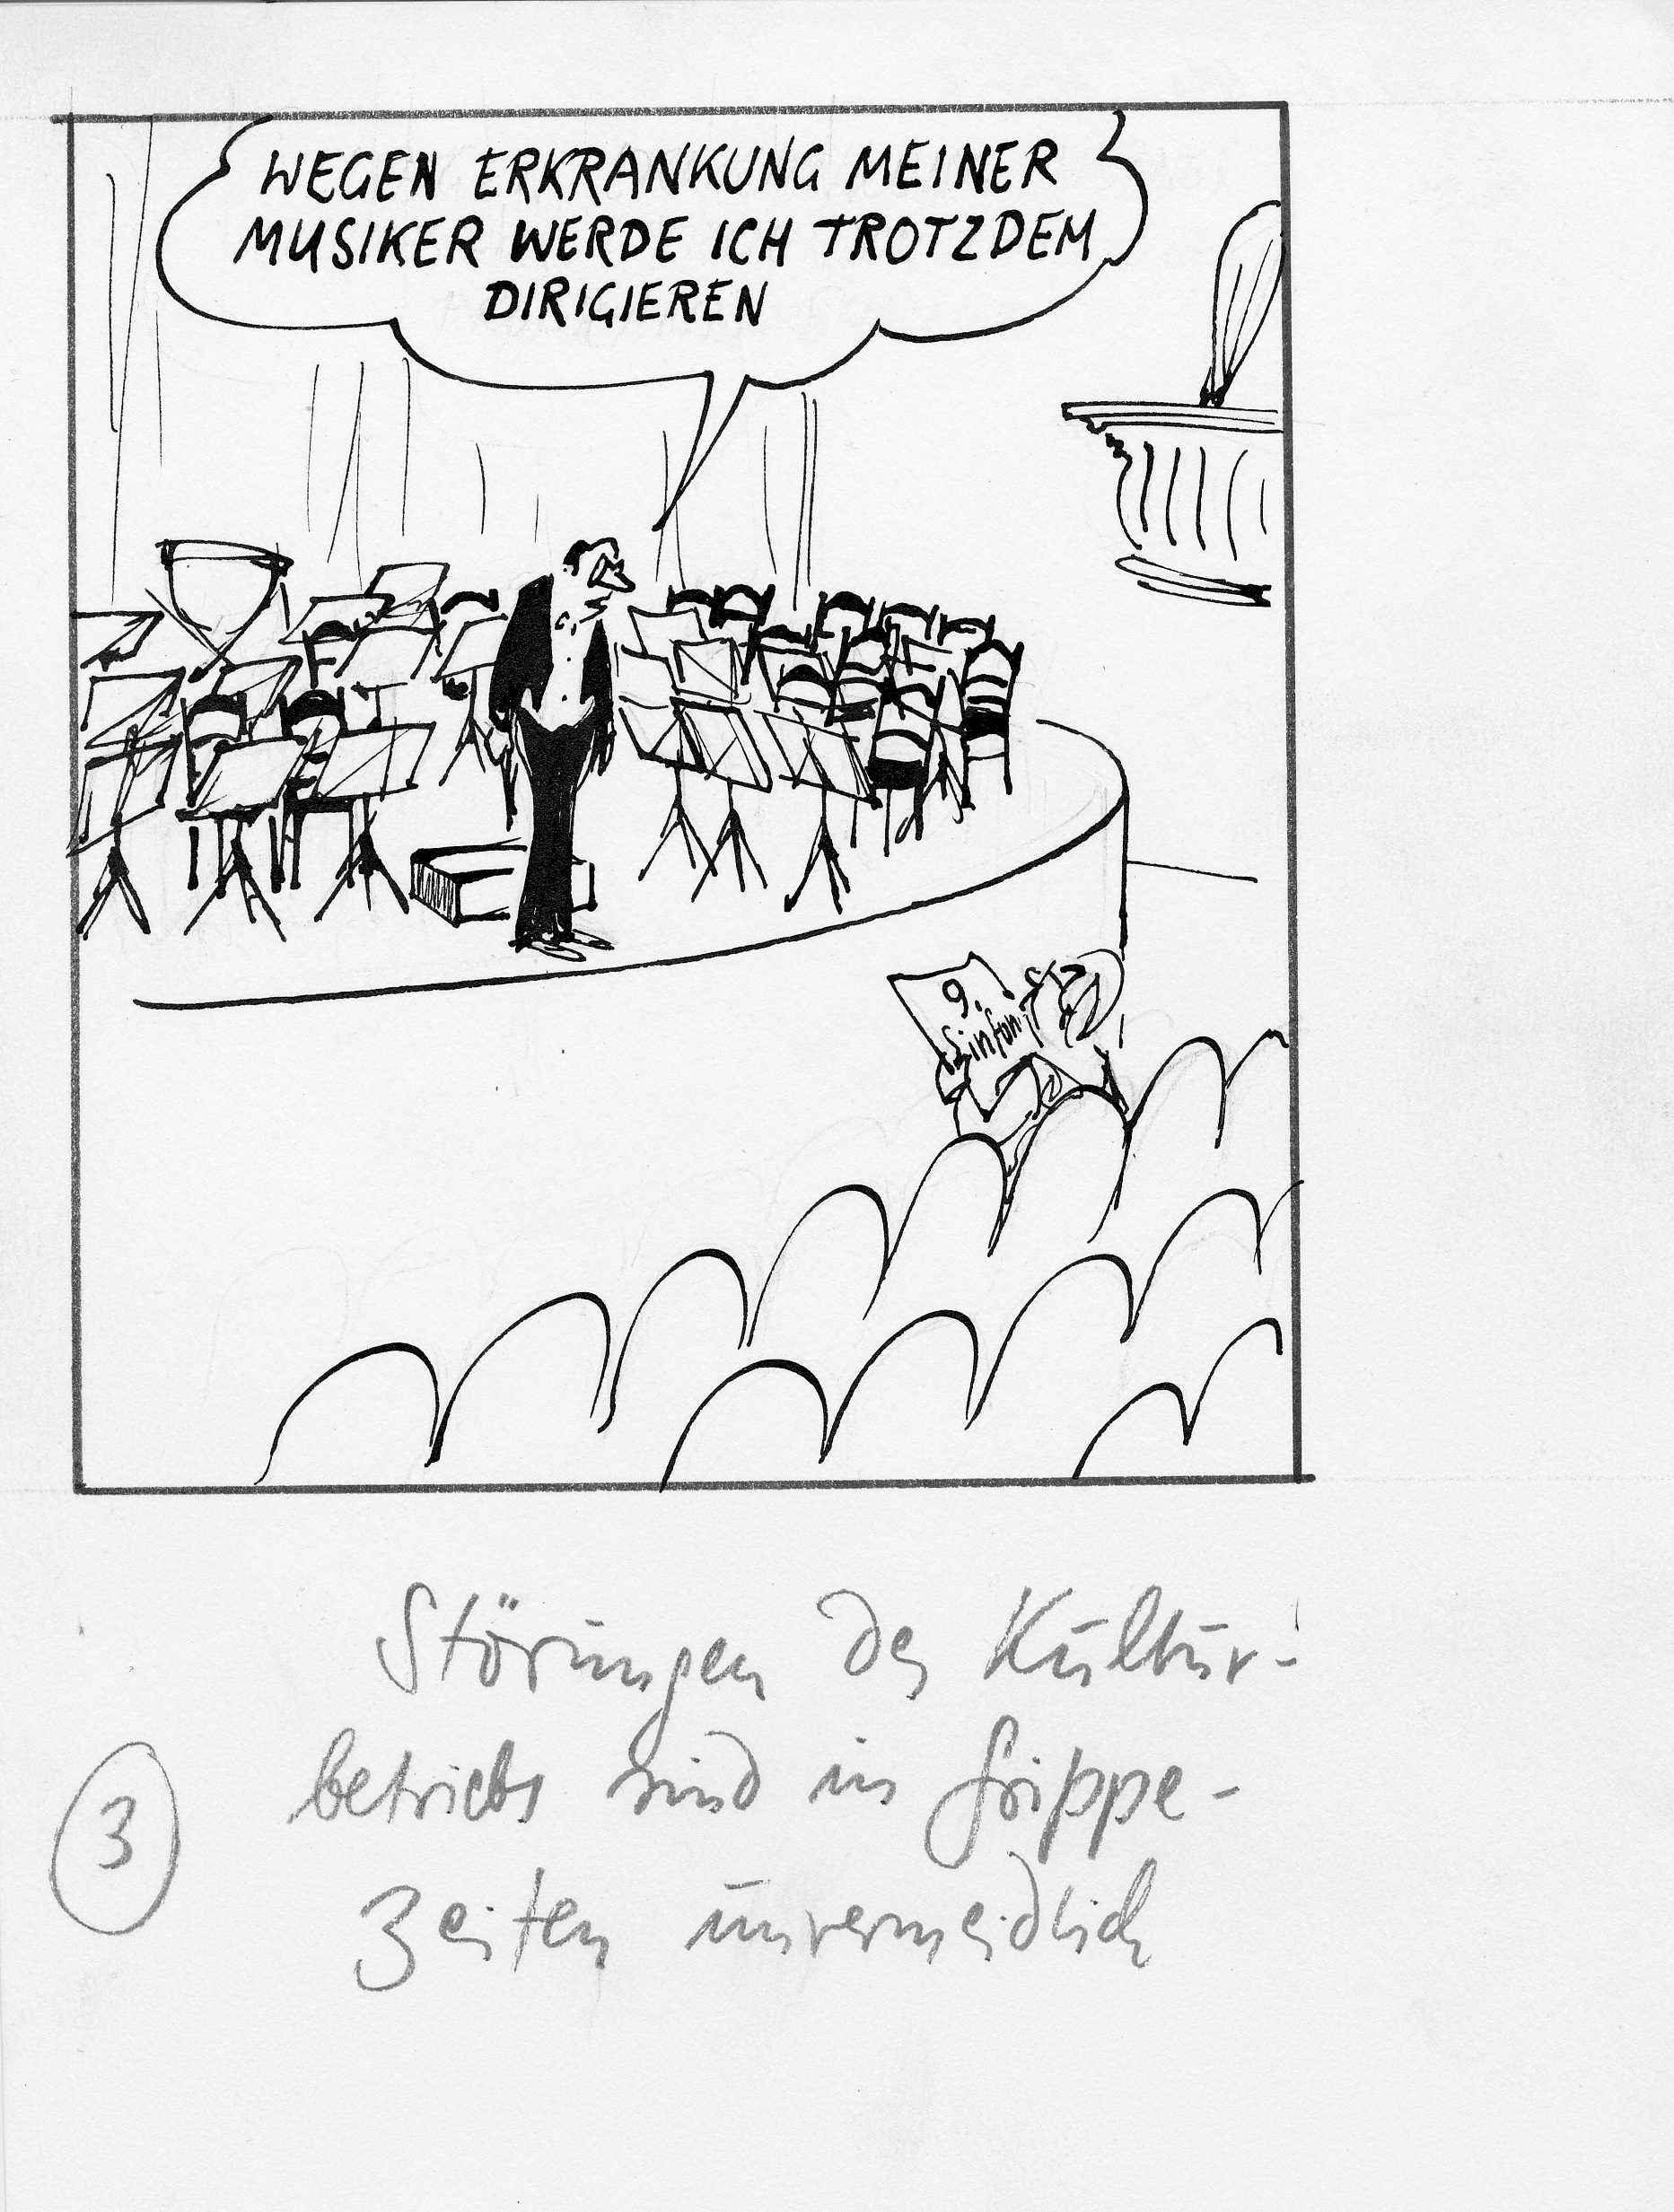 WEGEN ERKRANKUNG MEINER
MUSIKER WERDE ICH TROTZDEM
DIRIGIEREN
9.
Sinfonie
Störungen des Kultur-
betriebs sind in Grippe-
zeiten unvermeidlich
3